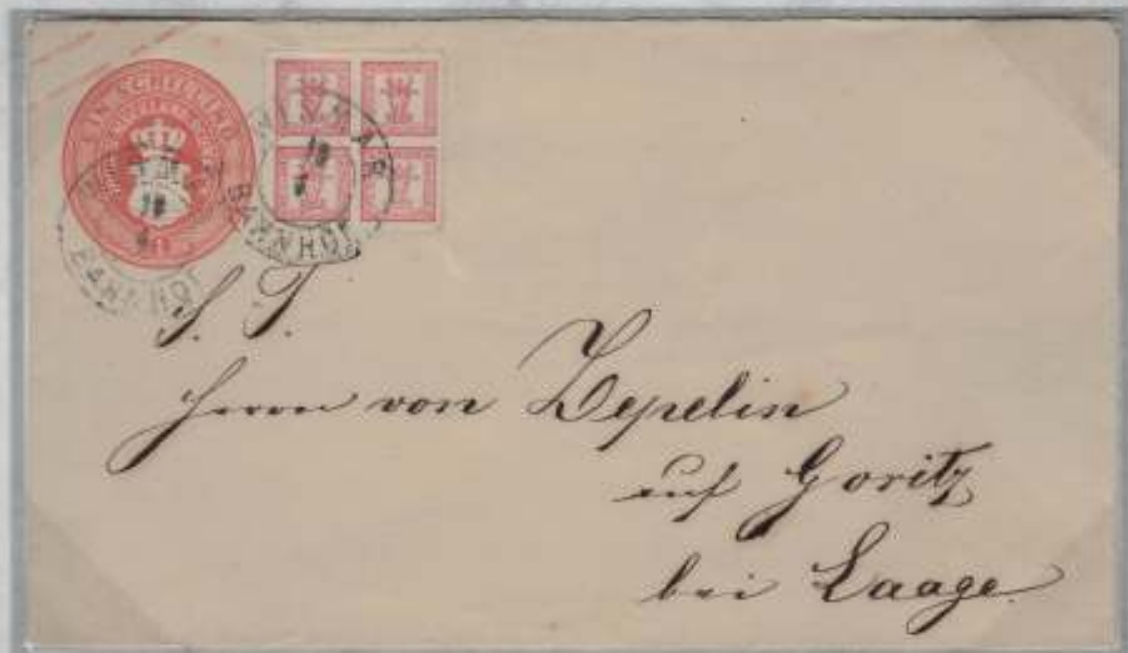 EIN SCHILLING
WISMAR
18
BAHNHOF
18
BAHNHOF
S. T.
Herrn von Zepelin
auf Goritz
bei Laage.